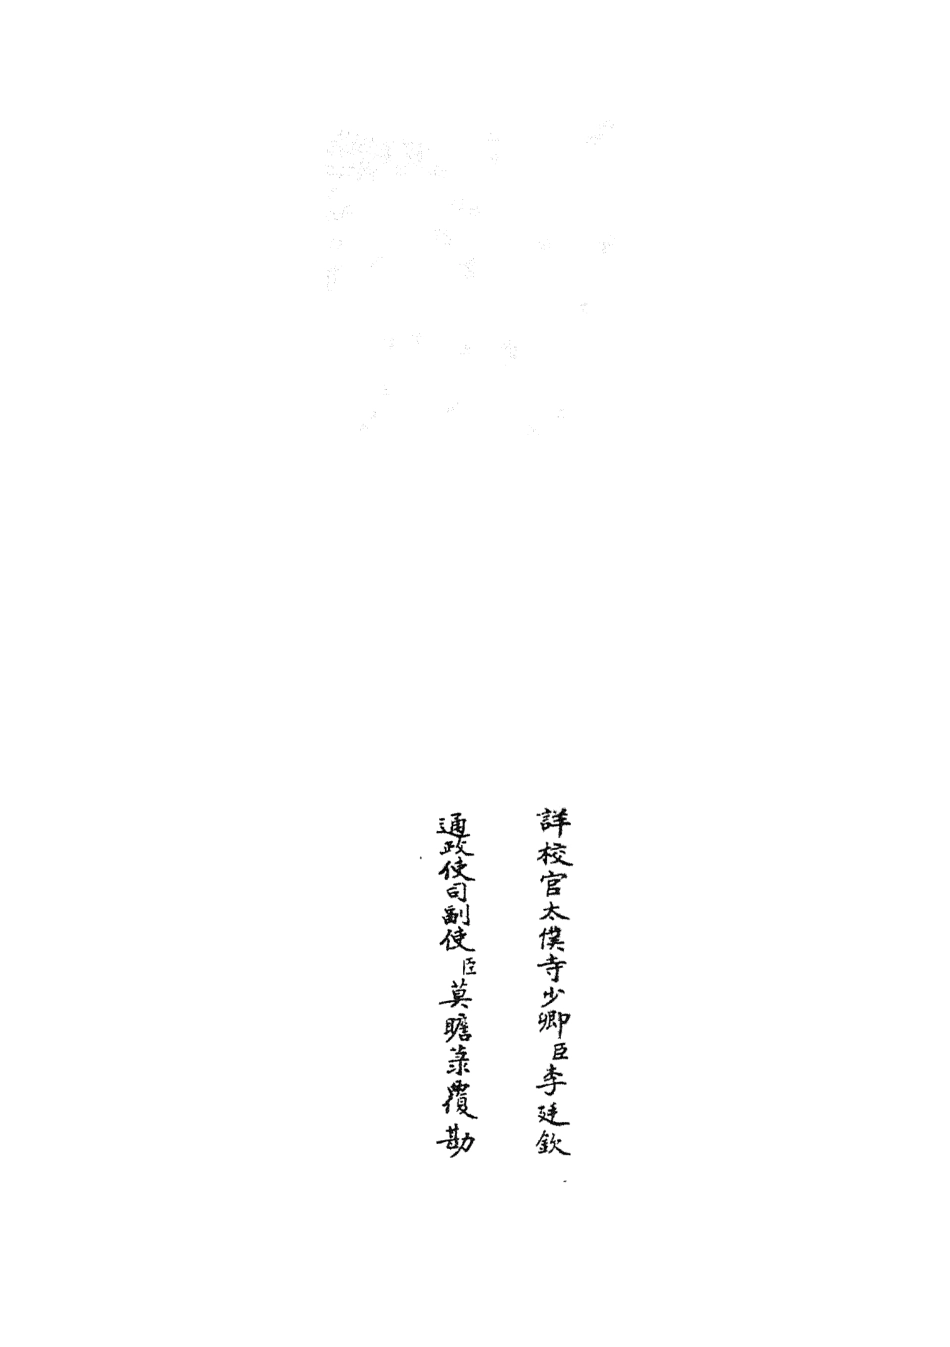 詳校官太僕寺少卿臣李廷欽
通政使司副使臣莫瞻菉覆勘